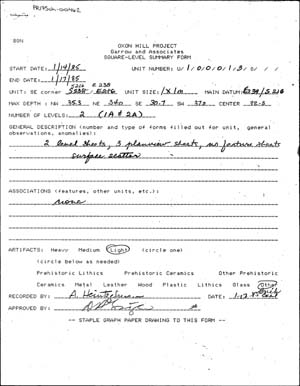 BON
OXON HILL PROJECT
Garrow and Associates
SQUARE-LEVEL SUMMARY FORM
START DATE: 1/14/85 UNIT NUMBER: U/1,0,0,0,1,3,0/
END DATE: 1/17/85
UNIT: SE corner UNIT SIZE: 1x1m MAIN DATUM:
MAX DEPTH: NW 35.3 NE 34.0 SE 30.7 SW 37.2 CENTER
NUMBER OF LEVELS: 2 (1A & 2A)
GENERAL DESCRIPTION (number and type of forms filled out for unit, general
observations, anomalies):
2 level sheets, 3 planview sheets, no feature sheets
surface scatter
ASSOCIATIONS (features, other units, etc.):
none
ARTIFACTS: Heavy Medium Light (circle one)
(circle below as needed)
Prehistoric Lithics Prehistoric Ceramics Other Prehistoric
Ceramics Metal Leather Wood Plastic Lithics Glass Other
RECORDED BY: A. DATE:
APPROVED BY:
-- STAPLE GRAPH PAPER DRAWING TO THIS FORM --